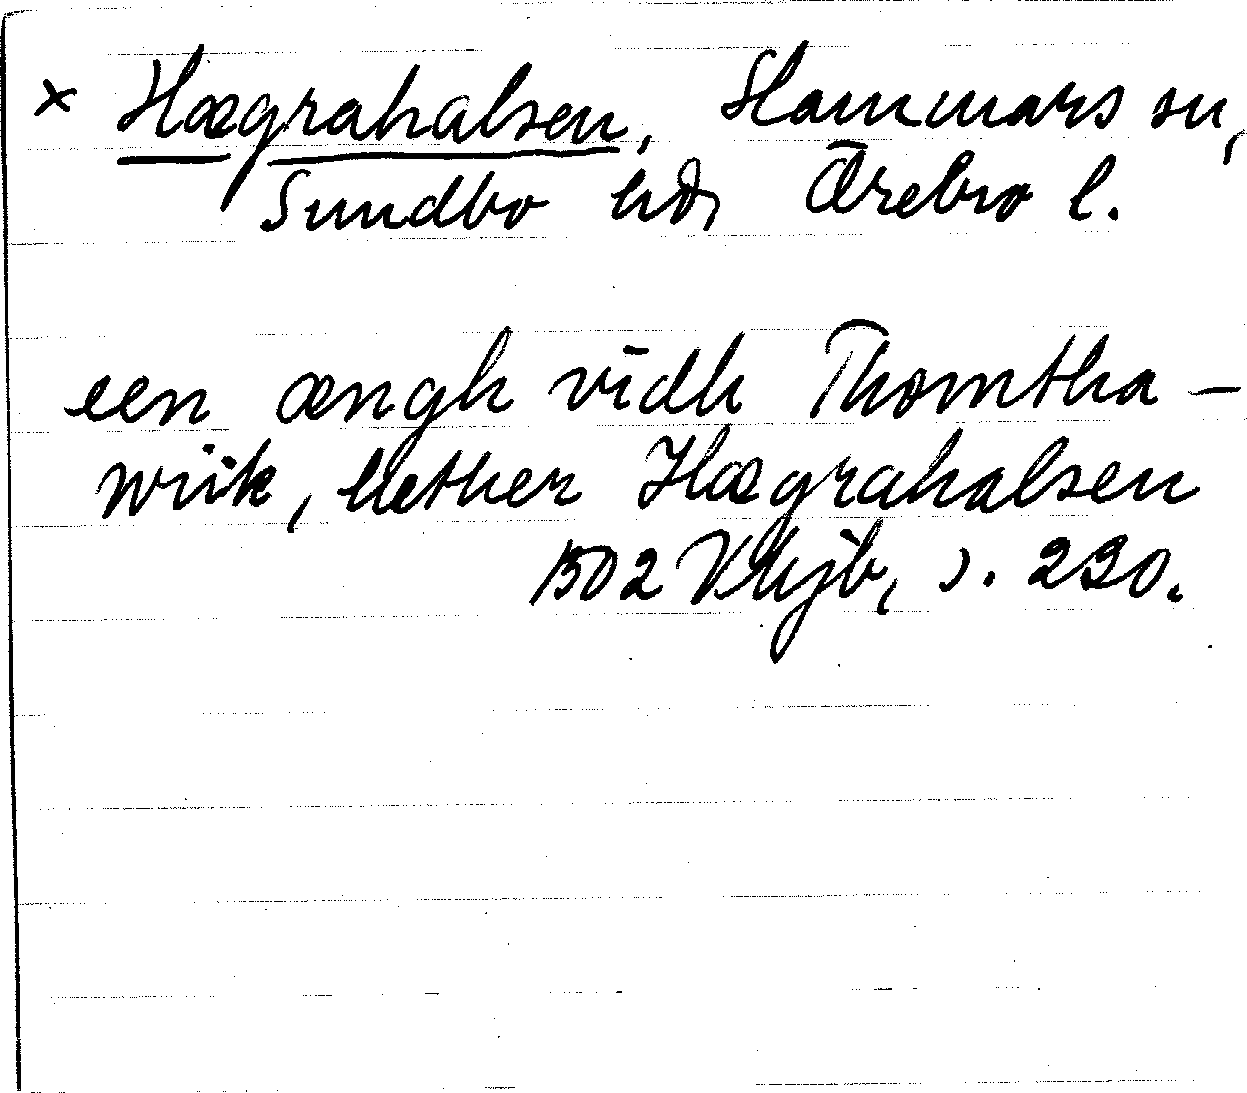 × Hægrahalsen, Hammars sn,
Sundbo hd, Örebro l.
een ængh vidh Thomtha-
wiik, hether Hægrahalsen
1502 Vkjb, s. 230.